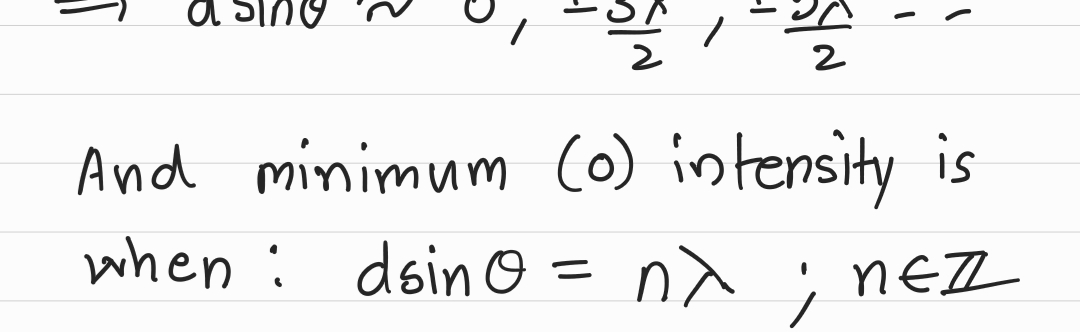 ⇒ dsinθ ≈ 0, ±3λ/2, ±5λ/2 --
And minimum (0) intensity is
when : dsinθ = nλ ; n∈ℤ